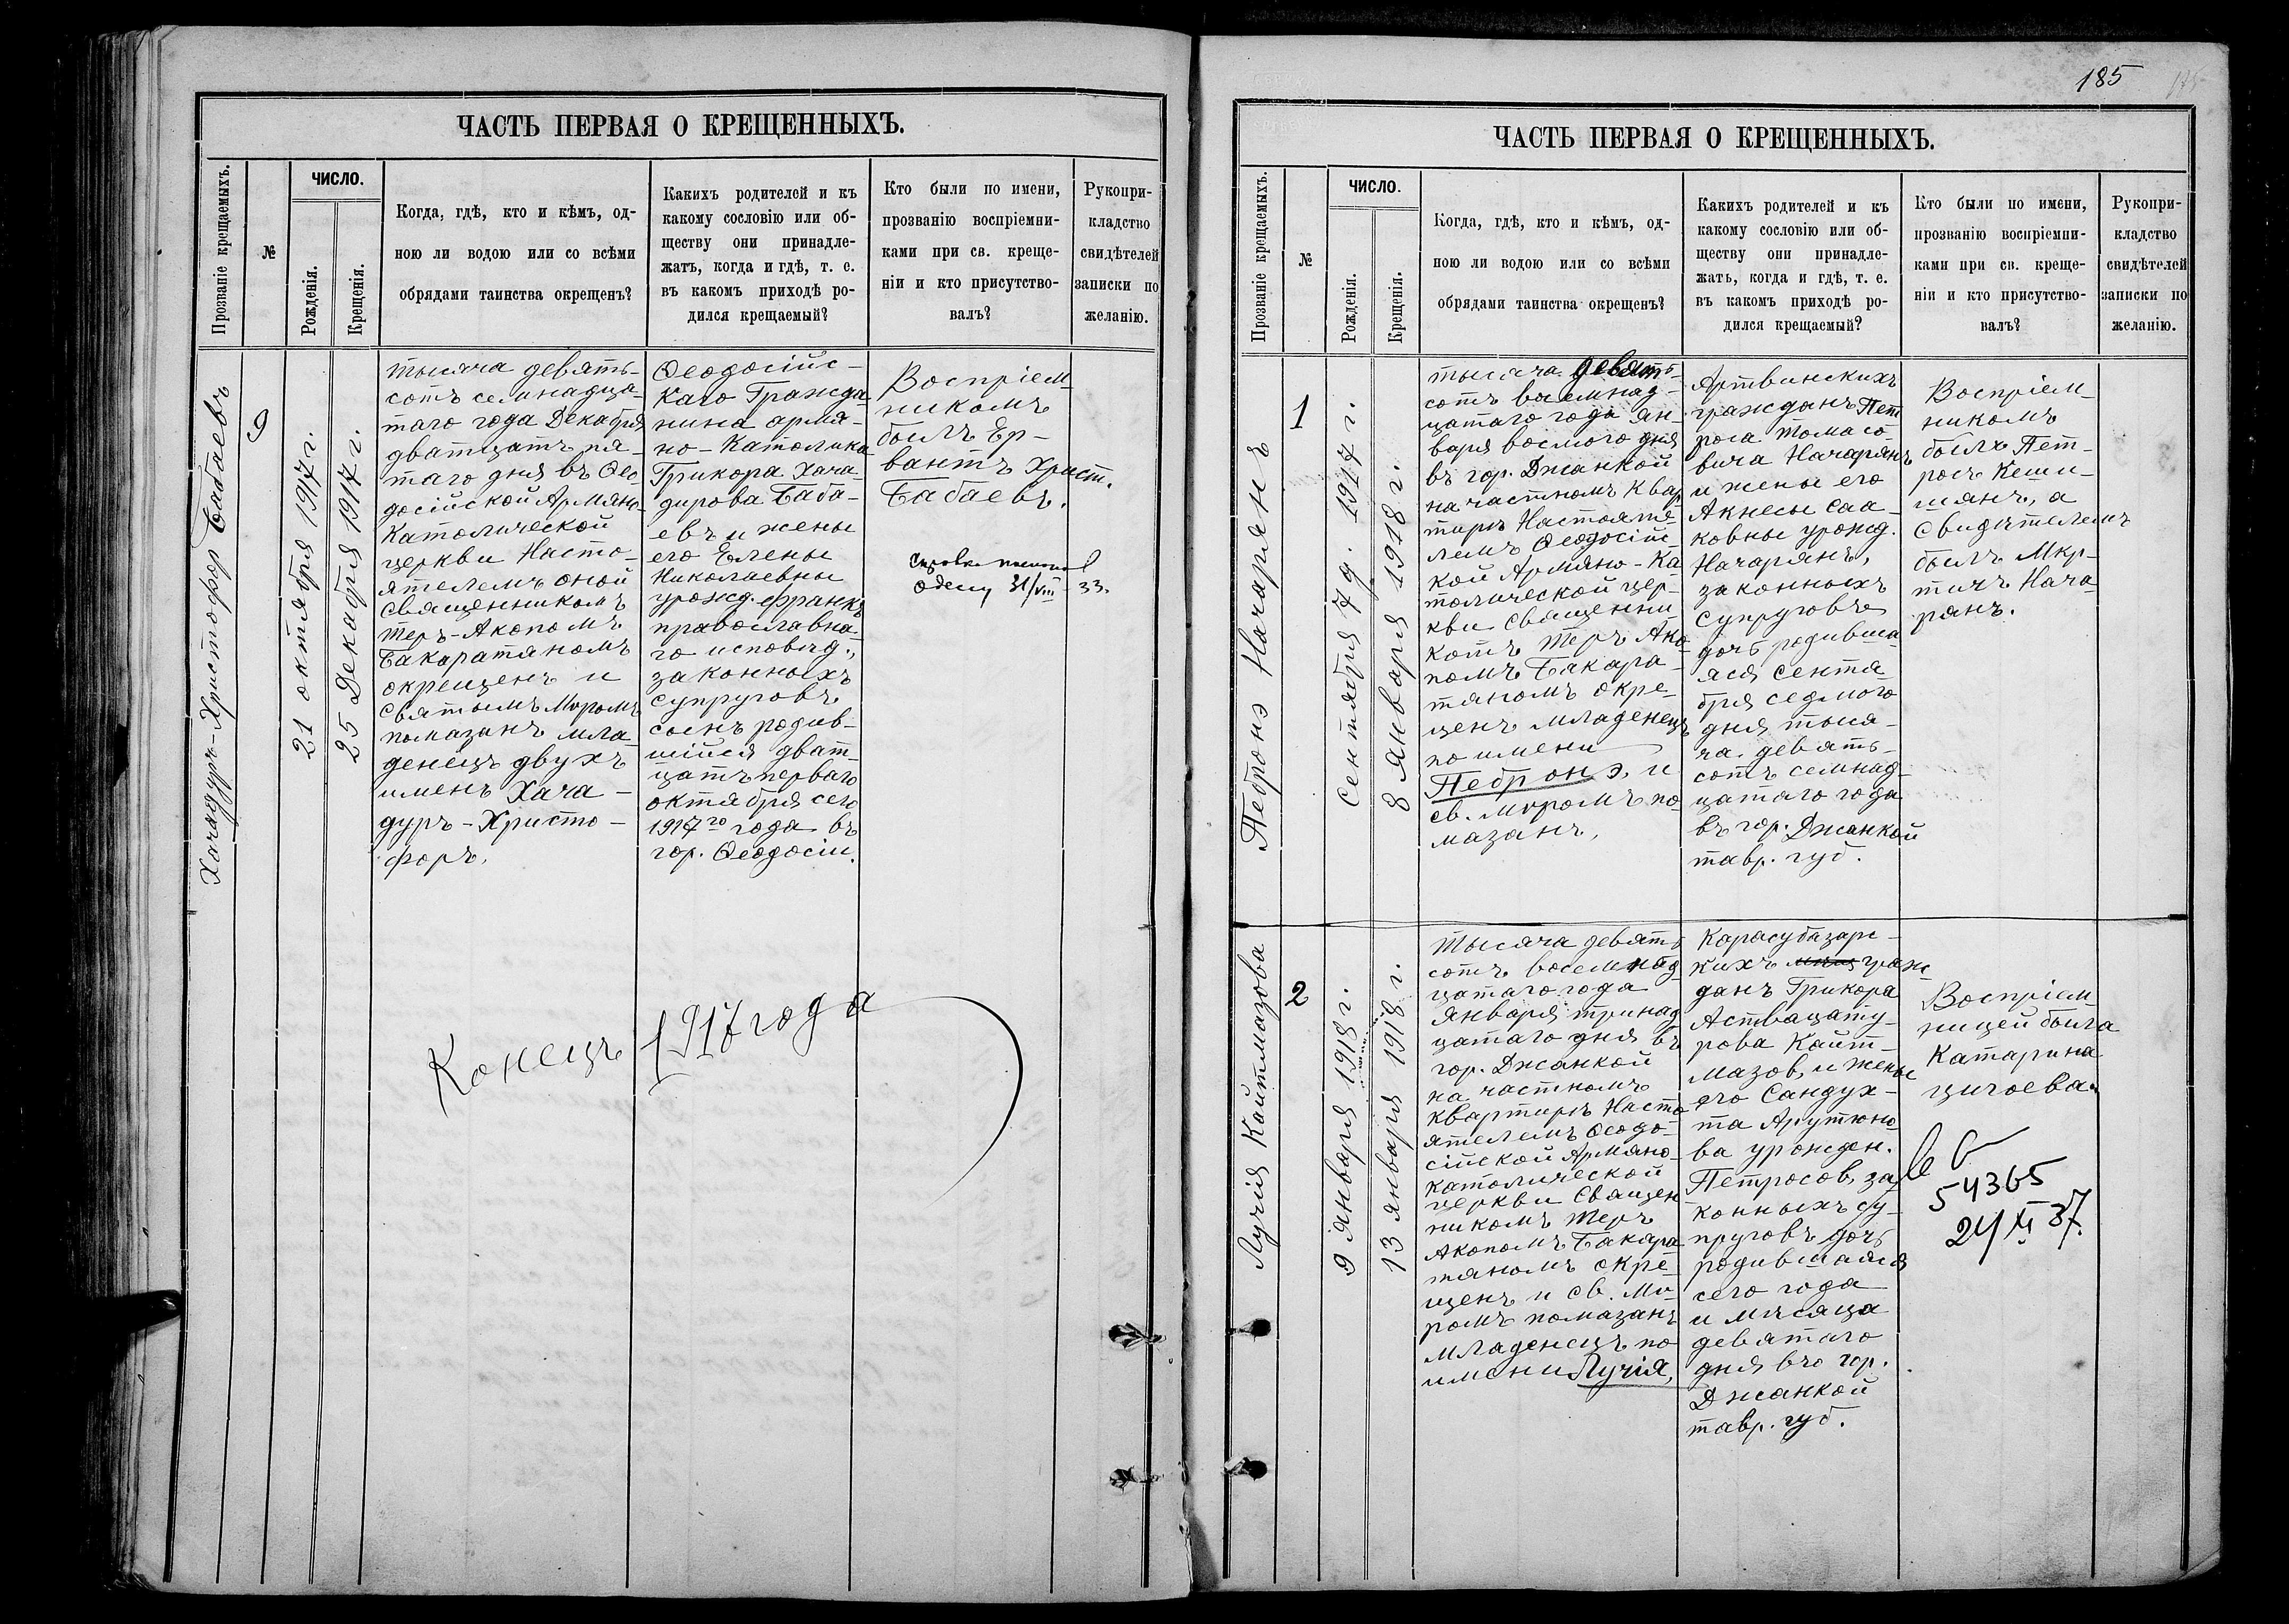 ЧАСТЬ ПЕРВАЯ О КРЕЩЕННЫХЪ.
Прозваніе крещаемыхъ.
№
ЧИСЛО.
Рожденія.
Крещенія.
Когда, гдѣ, кто и кѣмъ, од-
ною ли водою или со всѣми
обрядами таинства окрещенъ?
Какихъ родителей и къ
какому сословію или об-
ществу они принадле-
жатъ, когда и гдѣ, т. е.
въ какомъ приходѣ ро-
дился крещаемый?
Кто были по имени,
прозванію воспріемни-
ками при св. креще-
ніи и кто присутство-
валъ?
Рукопри-
кладство
свидѣтелей
записки по
желанію.
Хачадуръ-Христофор Бабаевъ
9
21 октября 1917 г.
25 Декабря 1917 г.
тысяча девять-
сотъ семнадца-
таго года Декабря
дватцать пя-
таго дня въ Ѳео
досійской Армяно
Католической
церкви Насто-
ятелемъ оной
Священникомъ
Теръ-Акопомъ
Бакаратяномъ
окрещенъ и
Святымъ Мѵромъ
помазанъ мла
денецъ двухъ
именъ Хача-
дуръ-Христо-
форъ.
Ѳеодосійс-
каго Гражда
нина армя-
но-Католика
Грикора Хача-
дурова Баба-
евъ и жены
его Елены
Николаевны
урожд. Франкъ
православна-
го исповѣд.,
законныхъ
супруговъ
сынъ родив-
шійся дват-
цать перваго
октября сего
1917го года въ
гор. Ѳеодосіи.
Воспріем-
никомъ
былъ Ер-
вантъ Христ.
Бабаевъ.
Одессу 31/VIII-33.
Конецъ 1917 года
185
ЧАСТЬ ПЕРВАЯ О КРЕЩЕННЫХЪ.
Прозваніе крещаемыхъ.
№
ЧИСЛО.
Рожденія.
Крещенія.
Когда, гдѣ, кто и кѣмъ, од-
ною ли водою или со всѣми
обрядами таинства окрещенъ?
Какихъ родителей и къ
какому сословію или об-
ществу они принадле-
жатъ, когда и гдѣ, т. е.
въ какомъ приходѣ ро-
дился крещаемый?
Кто были по имени,
прозванію воспріемни-
ками при св. креще-
ніи и кто присутство-
валъ?
Рукопри-
кладство
свидѣтелей
записки по
желанію.
Пебронэ Начарянъ
1
Сентября 7 д. 1917 г.
8 января 1918 г.
тысяча девять-
сотъ восемнад-
цатаго года ян-
варя восмого дня
въ гор. Джанкой
на частномъ квар
тирѣ Настояте-
лемъ Ѳеодосійс-
кой Армяно-Ка
толической цер-
кви Священни
комъ Теръ Ако
помъ Бакара-
тяномъ окре-
щенъ младенецъ
по имени
Пебронэ, и
св. мѵромъ по-
мазанъ,
Артвинскихъ
гражданъ Пет
роса Томасо-
вича Начарянъ
и жены его
Акнесы Саа-
ковны урожд.
Начарянъ,
законныхъ
супруговъ
дочь родивша-
яся Сентя
бря седмого
дня тыся-
ча девять-
сотъ семнад-
цатаго года
въ гор. Джанкой
тавр. губ.
Воспріем-
никомъ
былъ Пет-
росъ Кеши-
шянъ, а
свидѣтелемъ
былъ Мкр-
тичъ Нача-
рянъ.
Лучія Кайтмазова
2
9 января 1918 г.
13 января 1918 г.
Тысяча девять
сотъ восемнад
цатаго года
Января тринад
цатаго дня въ
гор. Джанкой
на частномъ
квартирѣ Насто
ятелемъ Ѳеодо-
сійской Армяно-
католической
церкви Священ
никомъ Теръ
Акопомъ Бакара
тяномъ окре-
щенъ и св. Мѵ-
ромъ помазанъ
младенецъ по
имени Лучія,
Карасубазарс-
кихъ граж
данъ Грикора
Аствацату-
рова Кайт-
мазов, и жены
его Сандух-
та Арутюно-
ва урожден.
Петросов, за
конныхъ су-
пруговъ дочь
родившаяся
сего года
и мѣсяца
девятаго
дня въ гор.
Джанкой
тавр. губ.
Воспріем-
ницей была
Катарина
Цигоева.
54365
24/XI 37.